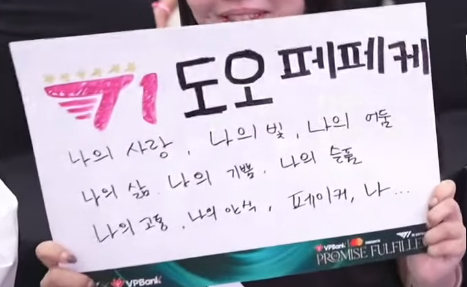 T1 도오페페케
나의 사랑, 나의 빛, 나의 어둠
나의 삶, 나의 기쁨, 나의 슬픔
나의 고통, 나의 안식, 페이커, 나...
VPBank VPBank mastercard T1
PROMISE FULFILLED